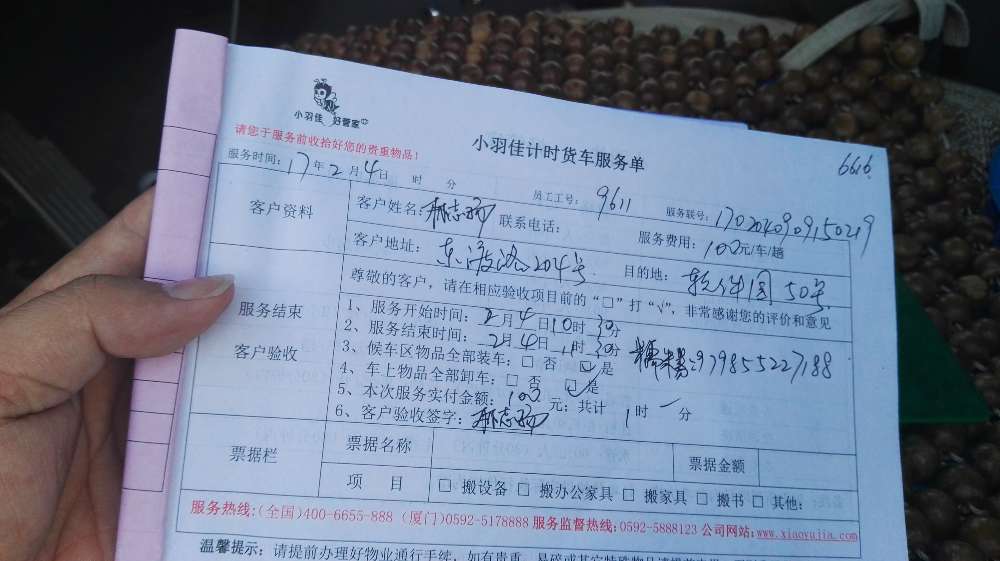 小羽佳 好管家
小羽佳计时货车服务单
6616
请您于服务前收拾好您的贵重物品!
服务时间: 17年2月4日 时 分 员工工号: 9611 服务联号: 1702040909150219
客户资料 客户姓名: 志 联系电话: 服务费用: 100元/车/趟
客户地址: 东渡路204号 目的地: 软件园50号
尊敬的客户, 请在相应验收项目前的“□”打“√”, 非常感谢您的评价和意见
服务结束
客户验收
1、服务开始时间: 2月4日10时30分
2、服务结束时间: 2月4日11时30分
3、候车区物品全部装车: □ 否 ☑ 是
4、车上物品全部卸车: □ 否 ☑ 是
5、本次服务实付金额: 100元; 共计 1时 一分
6、客户验收签字: 志
票据栏 票据名称 票据金额
项 目 □ 搬设备 □ 搬办公家具 □ 搬家具 □ 搬书 □ 其他:
服务热线:(全国)400-6655-888 (厦门)0592-5178888 服务监督热线:0592-5888123 公司网站:www.xiaoyujia.com
温馨提示: 请提前办理好物业通行手续, 如有贵重、易碎或其它特殊物品请提前